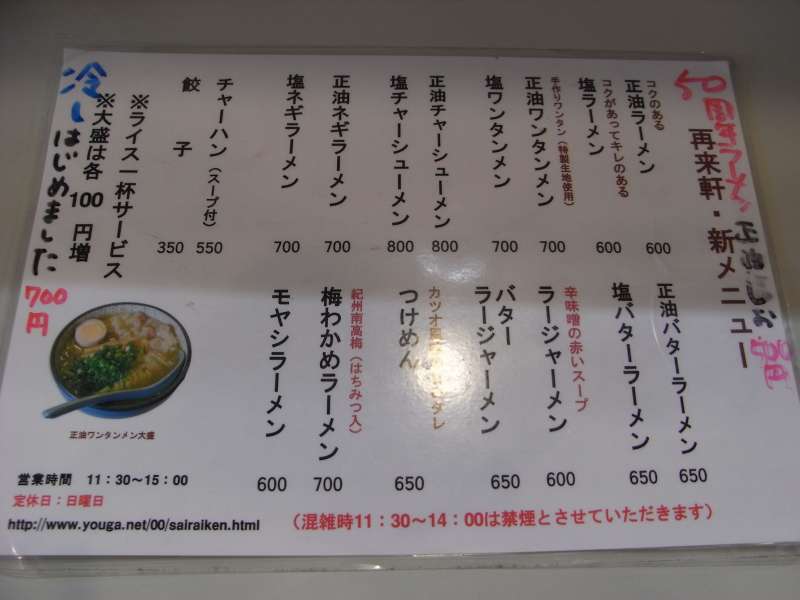 50周年ラーメン 正油 しお
再来軒・新メニュー
コクのある
正油ラーメン 600
コクがあってキレのある
塩ラーメン 600
手作りワンタン(特製生地使用)
正油ワンタンメン 700
塩ワンタンメン 700
正油チャーシューメン 800
塩チャーシューメン 800
正油ネギラーメン 700
塩ネギラーメン 700
チャーハン(スープ付) 550
餃子 350
正油バターラーメン 650
塩バターラーメン 650
辛味噌の赤いスープ
ラージャーメン 600
バター
ラージャーメン 650
カツオ
タレ
つけめん 650
紀州南高梅(はちみつ入)
梅わかめラーメン 700
モヤシラーメン 600
※ライス一杯サービス
※大盛は各100円増
冷しはじめました
700円
正油ワンタンメン大盛
営業時間 11:30〜15:00
定休日:日曜日
http://www.youga.net/00/sairaiken.html
(混雑時11:30〜14:00は禁煙とさせていただきます)